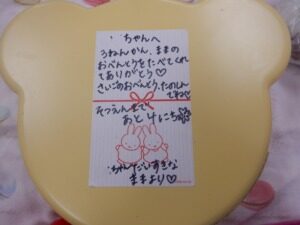 ちゃんへ
3ねんかん、ままの
おべんとうをたべてくれ
てありがとう♡
さいごのおべんとう、たのしん
でね♡
そつえんまで
あと4にち
ちゃんだいすきな
ままより♡